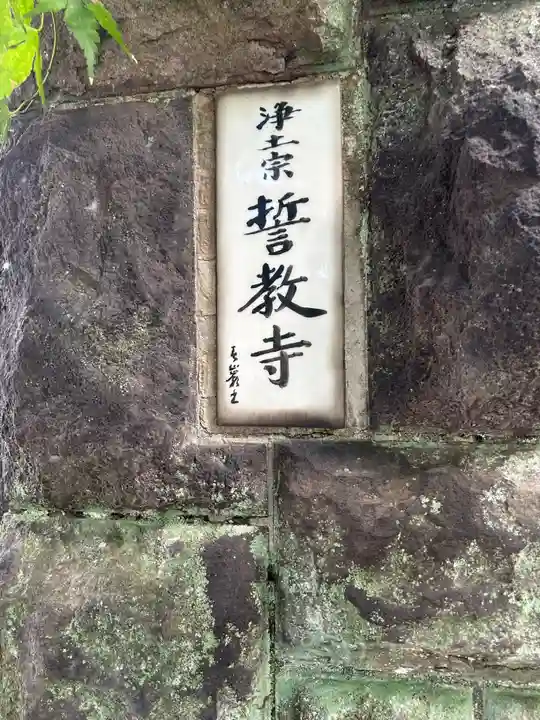 浄土宗
誓教寺